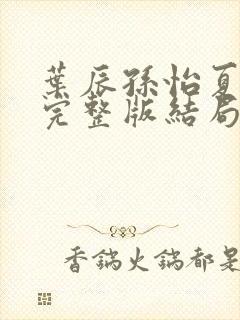 葉辰孫怡夏
完整版結局
香鍋火鍋都是